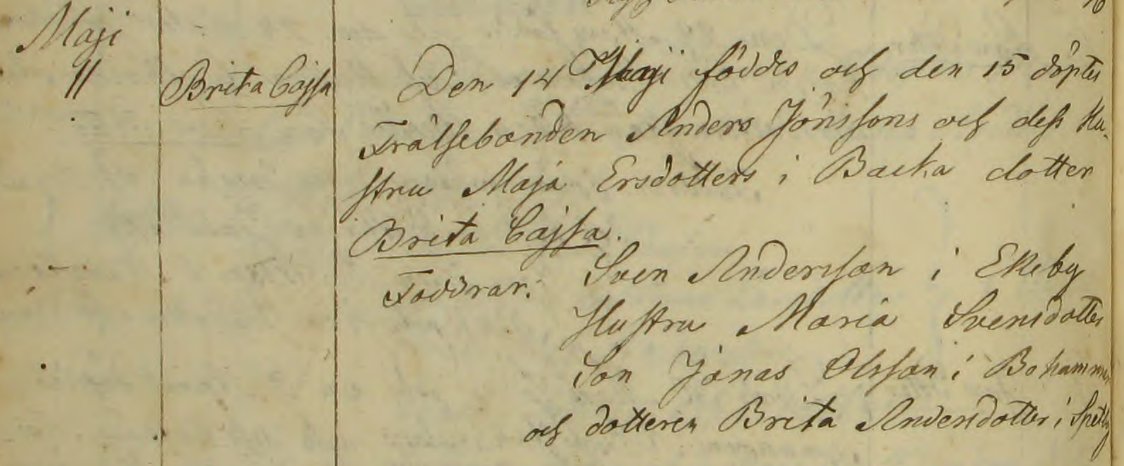 Maji
11
Brita Cajsa
Den 14 Maji föddes och den 15 döptes
Frälsebonden Anders Jönssons och dess Hu-
stru Maja Ersdotters i Backa dotter
Brita Cajsa.
Faddrar: Sven Andersson i Ekeby
Hustru Maria Svensdotter
Son Jonas Olsson i Bohammar
och dotteren Brita Andersdotter i